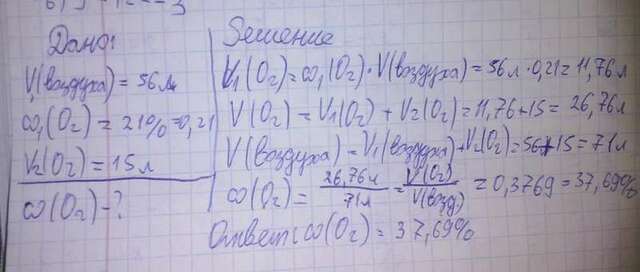 Дано:
V₁(воздуха) = 56 л
ω₁(O₂) = 21% = 0,21
V₂(O₂) = 15 л
ω(O₂) - ?
Решение
V₁(O₂) = ω₁(O₂) · V(воздуха) = 56 л · 0,21 = 11,76 л
V(O₂) = V₁(O₂) + V₂(O₂) = 11,76 + 15 = 26,76 л
V(воздуха) = V₁(воздуха) + V₂(O₂) = 56 + 15 = 71 л
ω(O₂) = 26,76 л / 71 л = V(O₂) / V(возд) = 0,3769 = 37,69%
Ответ: ω(O₂) = 37,69%